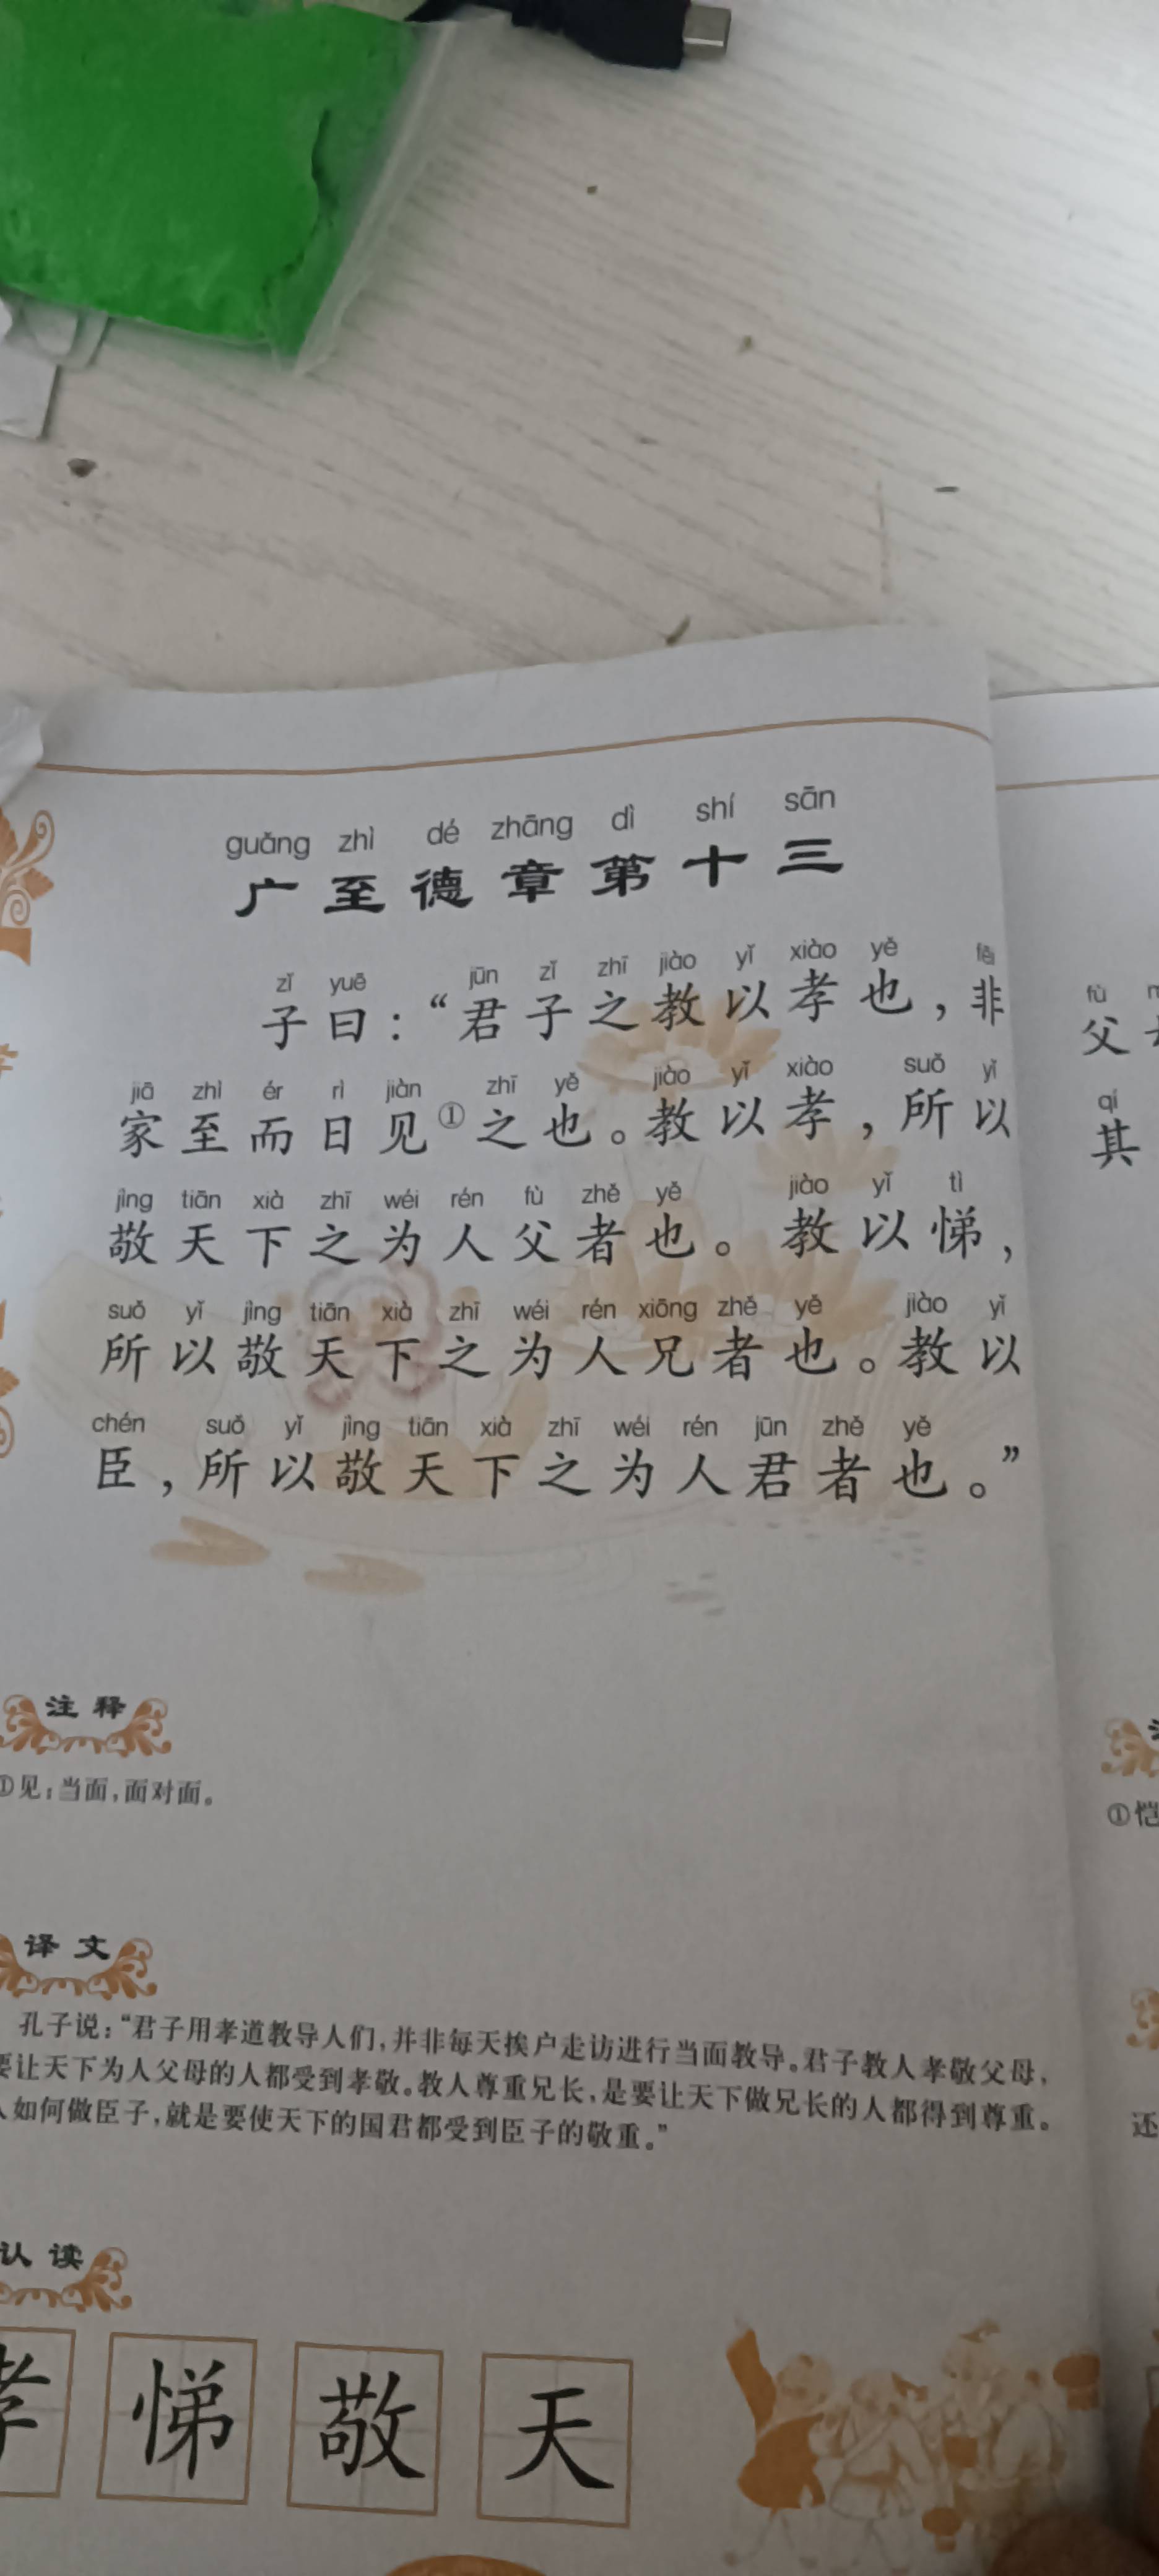 guǎng zhì dé zhāng dì shí sān
广至德章第十三
zǐ yuē jūn zǐ zhī jiào yǐ xiào yě fēi
子曰：“君子之教以孝也，非
jiā zhì ér rì jiàn zhī yě jiào yǐ xiào suǒ yǐ
家至而日见①之也。教以孝，所以
jìng tiān xià zhī wéi rén fù zhě yě jiào yǐ tì
敬天下之为人父者也。教以悌，
suǒ yǐ jìng tiān xià zhī wéi rén xiōng zhě yě jiào yǐ
所以敬天下之为人兄者也。教以
chén suǒ yǐ jìng tiān xià zhī wéi rén jūn zhě yě
臣，所以敬天下之为人君者也。”
注释
①见：当面，面对面。
译文
孔子说：“君子用孝道教导人们，并非每天挨户走访进行当面教导。君子教人孝敬父母，
要让天下为人父母的人都受到孝敬。教人尊重兄长，是要让天下做兄长的人都得到尊重。
人如何做臣子，就是要使天下的国君都受到臣子的敬重。”
认读
孝 悌 敬 天
fù
父
qí
其
①恺
还